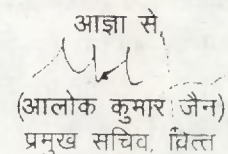 आज्ञा से,
(आलोक कुमार जैन)
प्रमुख सचिव, वित्त